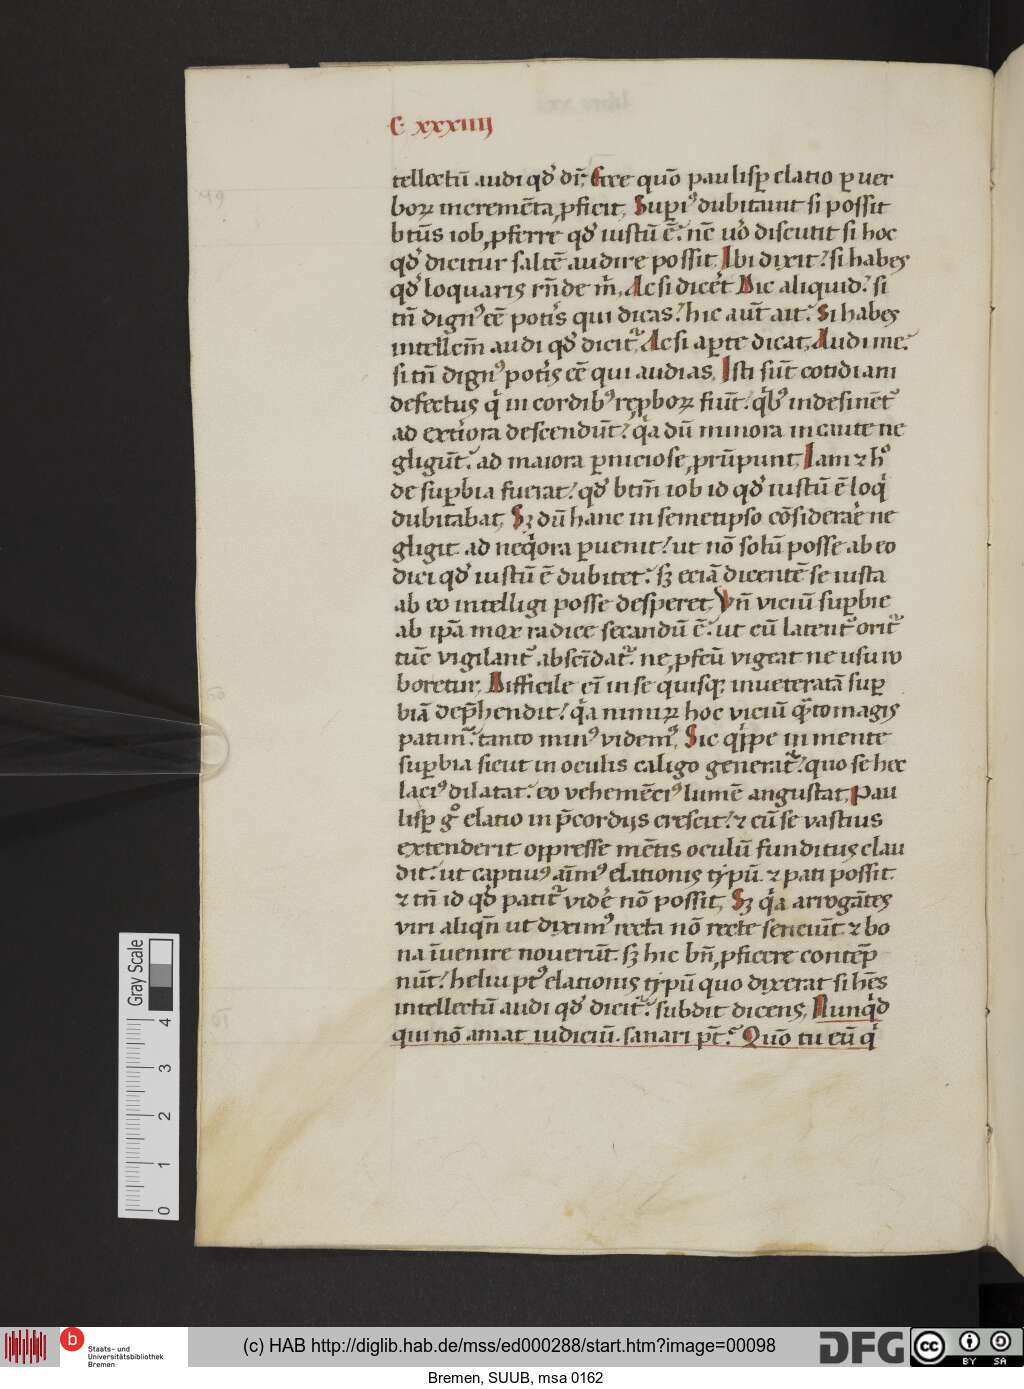 C xxxiiij
tellectū audi qd̕ dr̄; Ecce quō paulisp̱ elatio p̱ uer
boꝝ incremēta ꝓficit. Supi᷒ dubitauit si possit
btūs iob ꝓferre qd̕ iustū ē. nē uo̕ discutit si hoc
qd̕ dicitur saltē audire possit. Ibi dixit? si habes
qd̕ loquaris rn̄de m̄. Ac si dicēt Dic aliquid? si
tn̄ dign᷒ eē potis qui dicas? hic aut̄ ait. Si habes
intellcm̄ audi qd̕ dicit᷑. Ac si ap̱te dicat. Audi me?
si tn̄ dign᷒ potis eē qui audias. Isti sūt cotidiani
defectus q̇ in cordib᷒ rep̱boꝝ fiūt? qib᷒ indesinēt᷑
ad exti̇ora descendūt? qa dū minora incaute ne
gligūt. ad maiora p̱niciose ꝓrūpunt. Iam ⁊ h᷒
de sup̱bia fuerat? qd̕ btm̄ iob id qd̕ iustū ē loq̇
dubitabat. Sꝫ dū hanc in semetipso cōsiderae̕ ne
gligit. ad neqora p̱uenit? ut nō solū posse ab eo
dici qd̕ iustū ē dubitet. sꝫ eciā dicentē se iusta
ab eo intelligi posse desperet. Vn̄ viciū sup̱bie
ab ip̄a mox radice secandū ē. ut cū latent᷑ orit᷑
tūc vigilant᷑ abscīdat᷑. ne ꝓfcū vigeat ne usu ro
boretur. Difficile ei̅ in se quisqꝫ inueteratā sup̱
biā dep̄hendit? qa nimiꝝ hoc viciū q̄nto magis
patim᷑. tanto min᷒ videm᷒. Sic qippe in mente
sup̱bia sicut in oculis caligo generat᷑? quo se hec
laci᷒ dilatat. eo vehemēci᷒ lumē angustat. Pau
lisp̱ go elatio in p̄cordijs crescit? ⁊ cū se vastius
extenderit oppresse mētis oculū funditus clau
dit. ut captiu᷒ aīm᷒ elationis typū ⁊ pati possit.
⁊ tn̄ id qd̕ patit᷑ vide̕ nō possit. Sꝫ qa arrogātes
viri aliqn̄ ut dixim᷒ recta nō recte senciūt. ⁊ bo
na īuenire nouerūt. sꝫ hic bn̄ ꝓficere contēp
nūt? heliu pt᷒ elationis typū quo dixerat si hēs
intellectū audi qd̕ dicit᷑. subdit dicens. Nunqd
qui nō amat iudiciū. sanari pt̄? Quō tu eū q̇
Gray Scale
4
3
2
1
0
b
Staats- und
Universitätsbibliothek
Bremen
(c) HAB http://diglib.hab.de/mss/ed000288/start.htm?image=00098
DFG
cc
BY
SA
Bremen, SUUB, msa 0162